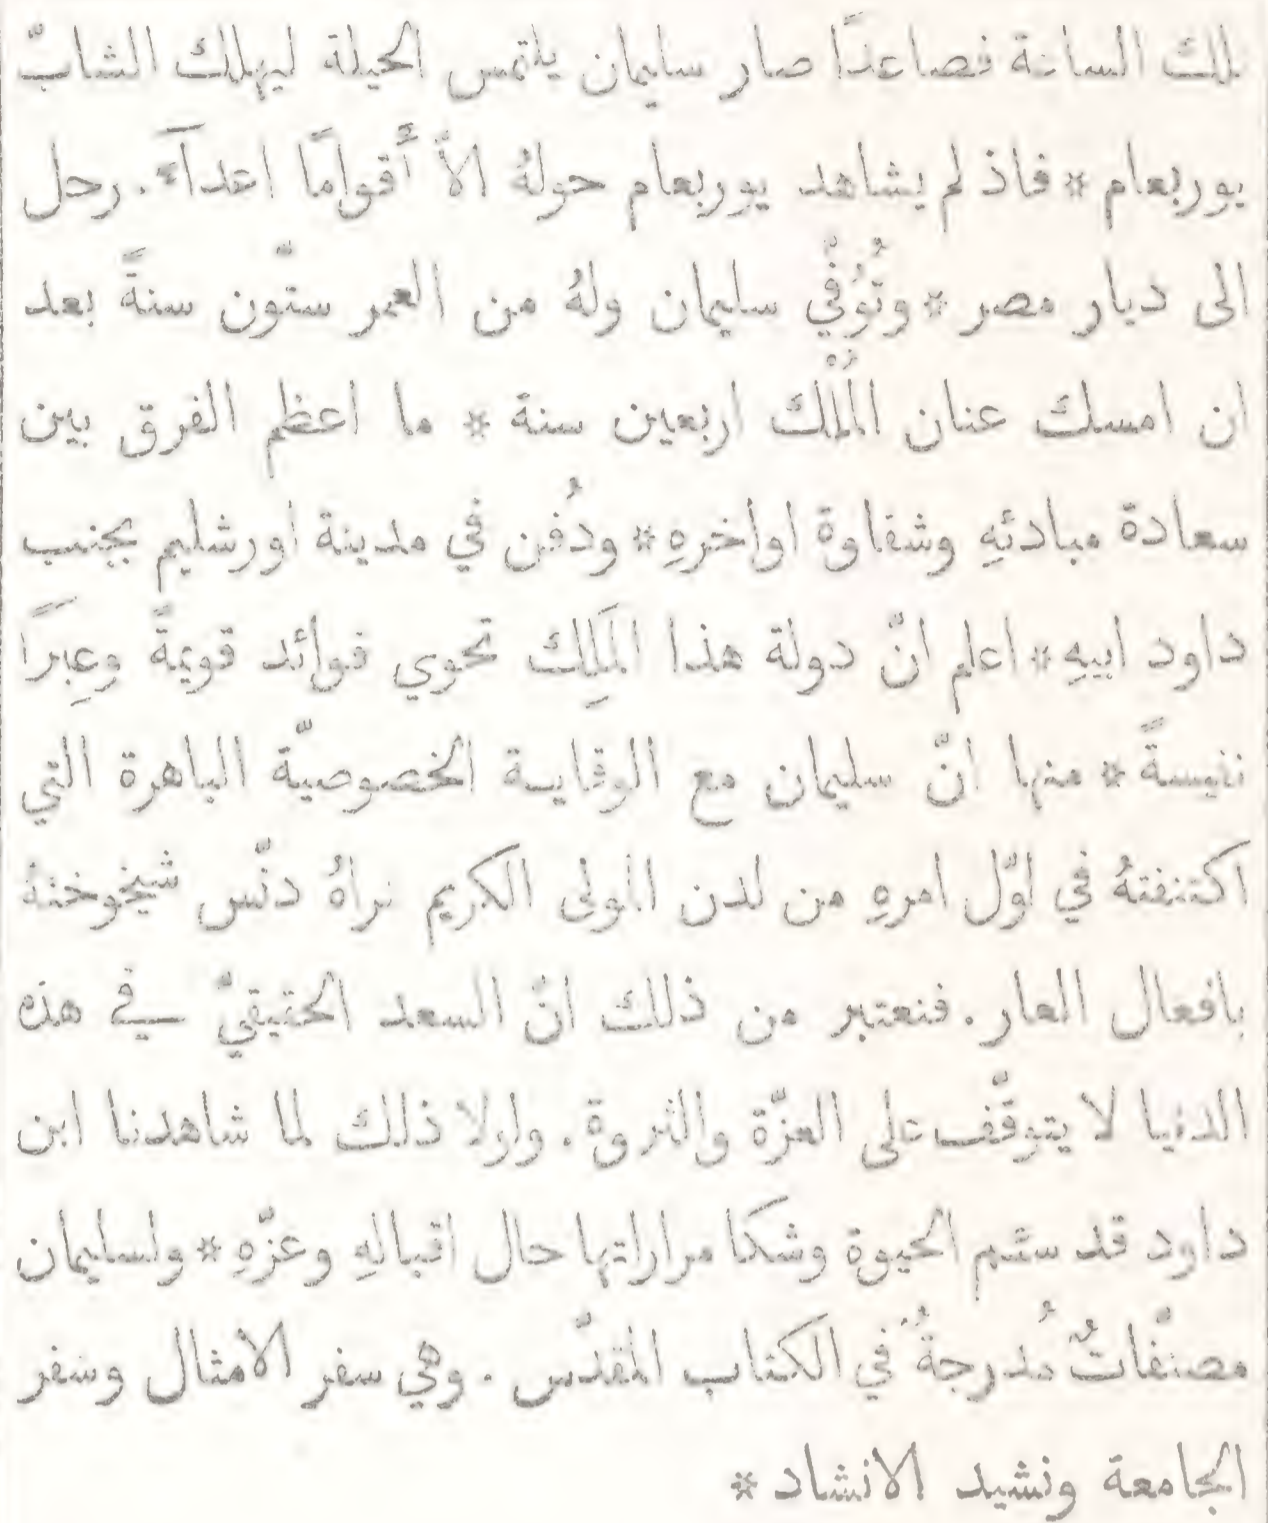 تلك الساعة فصاعدًا صار سليمان يلتمس الحيلة ليهلك الشابّ
يوربعام * فاذ لم يشاهد يوربعام حولهُ الاَّ أَقوامًا اعدآءً . رحل
الى ديار مصر * وتُوُفّي سليمان ولهُ من العمر ستّون سنةً بعد
ان امسك عنان المُلْك اربعين سنة * ما اعظم الفرق بين
سعادة مبادئهِ وشقاوة اواخرهِ * ودُفن في مدينة اورشليم بجنب
داود ابيهِ * اعلم انّ دولة هذا المَلِك تحوي فوائد قويمةً وعِبرًا
نفيسةً * منها انّ سليمان مع الوقايـة الخصوصيّة الباهرة التي
اكتنفتهُ في اوّل امرهِ من لدن المولى الكريم نراهُ دنّس شيخوختهُ
بافعال العار . فنعتبر من ذلك انّ السعد الحقيقيّ في هذه
الدنيا لا يتوقّف على العزّة والثروة . ولولا ذلك لما شاهدنا ابن
داود قد سئم الحيوة وشكا مراراتها حال اقبالهِ وعزّهِ * ولسليمان
مصنّفاتٌ مُدرجةٌ في الكتاب المقدّس . وهي سفر الامثال وسفر
الجامعة ونشيد الانشاد *